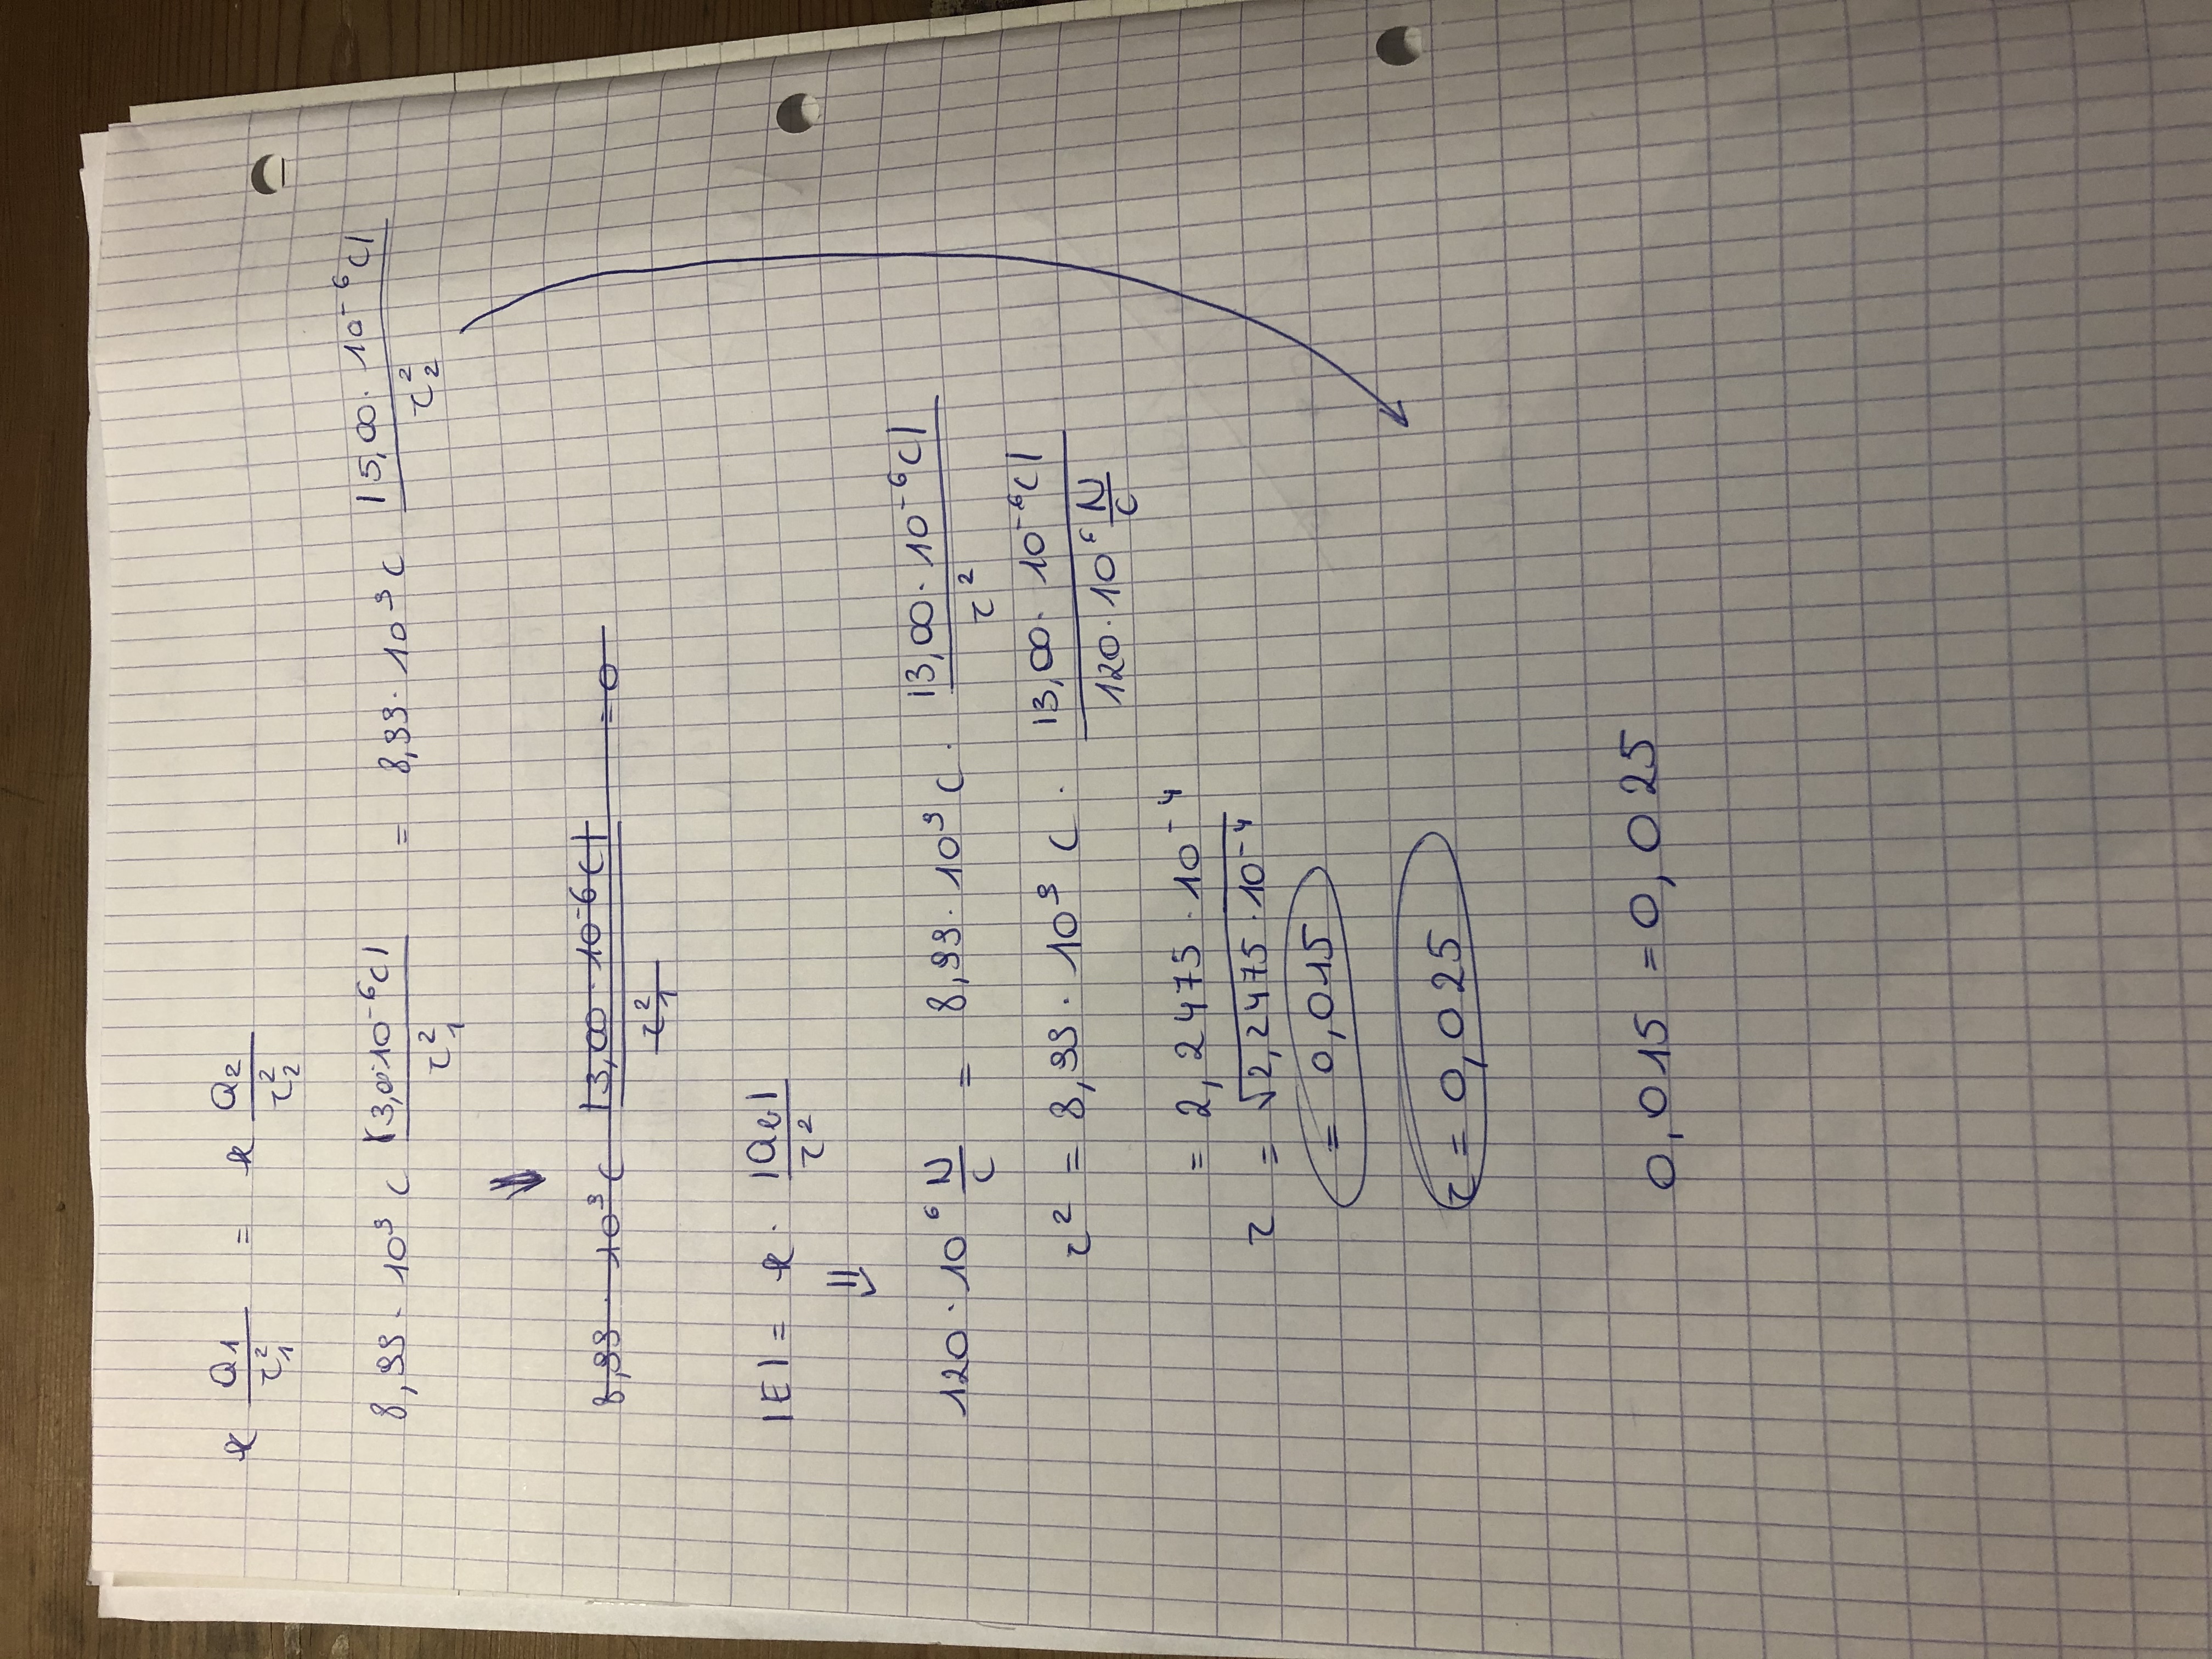 k Q1/r₁² = k Q2/r₂²
8,99 · 10⁹ C |3,00·10⁻⁶C|/r₁² = 8,99 · 10⁹ C |5,00 · 10⁻⁶C|/r₂²
8,99 · 10⁹ C |3,00 · 10⁻⁶C|/r₁² = 0
|E| = k · |Qe|/r²
120 · 10⁶ N/C = 8,99 · 10⁹ C · |3,00 · 10⁻⁶C|/r²
r² = 8,99 · 10⁹ C · |3,00 · 10⁻⁶C|/120 · 10⁶ N/C
= 2,2475 · 10⁻⁴
r = √2,2475 · 10⁻⁴
= 0,015
r = 0,025
0,015 = 0,025